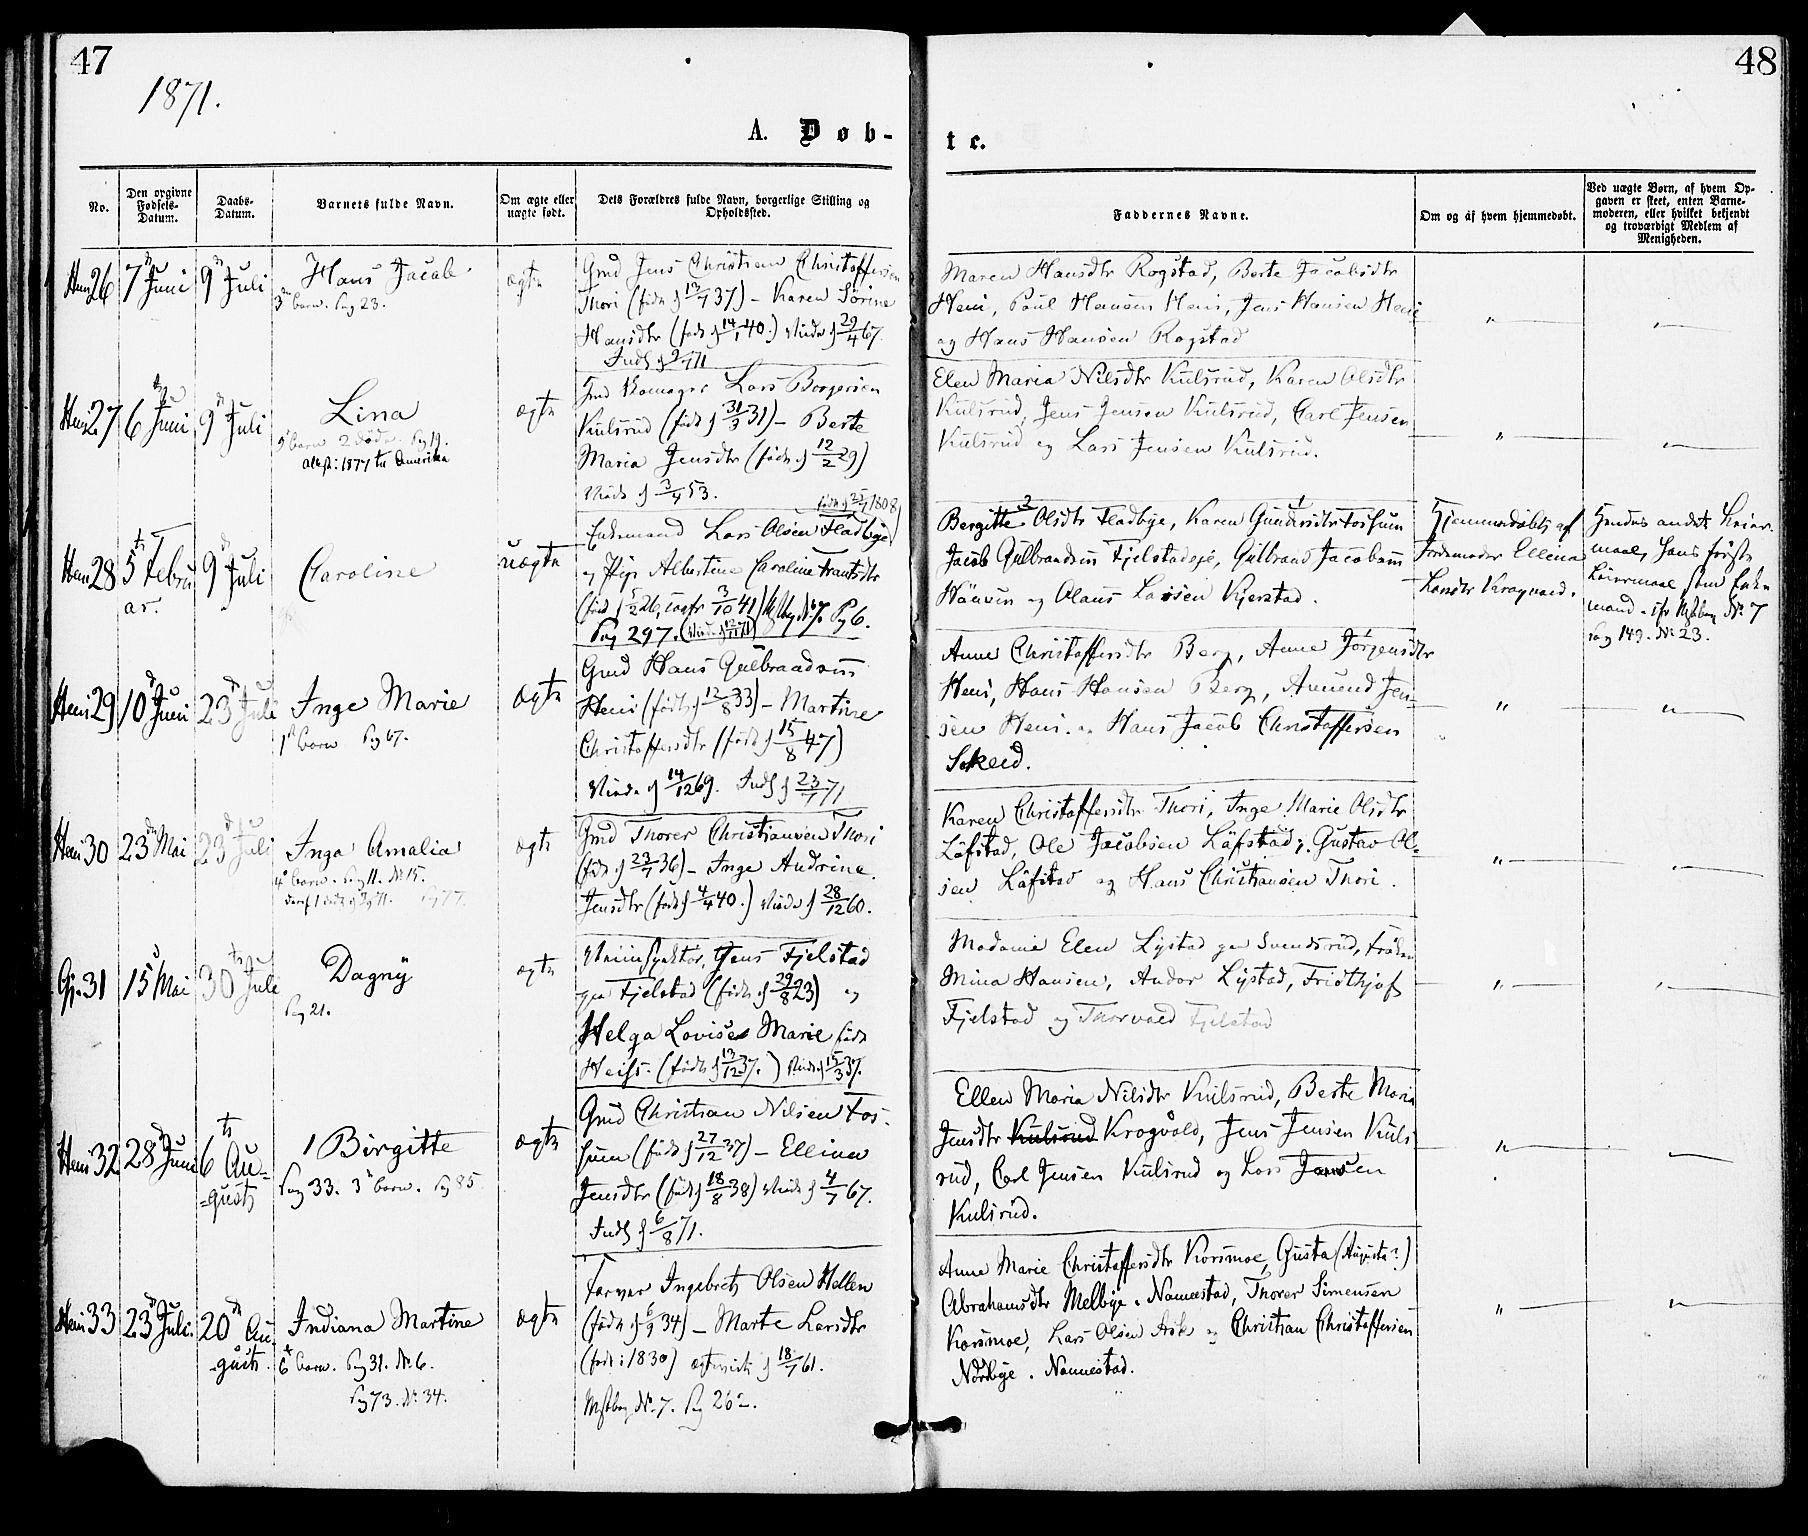 47
48
1871.
A. Døb-
te.
No.
Den opgivne
Fødsels-
Datum.
Daabs-
Datum.
Barnets fulde Navn.
Om ægte eller
uægte født.
Dets Forældres fulde Navn, borgerlige Stilling og
Opholdssted.
Faddernes Navne.
Om og af hvem hjemmedøbt.
Ved uægte Børn, af hvem Op-
gaven er skeet, enten Barne-
moderen, eller hvilket bekjendt
og troværdigt Medlem af
Menigheden.
26
7 Juni
9 Juli
Hans Jacob
3 barn. Pag 23.
ægte
Gmd Jens Christian Christoffersen
Thori (født d 13/7 37) – Karen Sørine
Hansdtr (født d 14/1 40.) Viede d 29/4 67.
Maren Hansdtr Rogstad, Berte Jacobsdtr
Heni, Poul Hansen Heni, Jens Hansen Heni
og Hans Hansen Rogstad
27
6 Juni
9 Juli
Lina
5 barn 2 døde. Pag 19.
1877 til Amerika
ægte
Lars Borgersen
Kulsrud (født d 31/3 31) – Berte
Maria Jensdtr (født d 12/2 29)
Viede d 3/4 53.
Elen Maria Nilsdtr Kulsrud, Karen Olsdtr
Kulsrud, Jens Jensen Kulsrud, Carl Jensen
Kulsrud og Lars Jensen Kulsrud.
28
5 Febru
ar.
9 Juli
Caroline
uægte
Enkemand Lars Olsen Fladbye
og Pige Albertine Caroline Frantsdtr
Pag 297.
Bergitte Olsdtr Fladbye, Karen Fossum
Jacob Gulbrandsen Fjelstadeje, Gulbrand Jacobsen
og Olaus Larsen Kjerstad.
Hjemmedøbt af
Jordemoder Ellena
Larsdtr Kragvold.
Hendes andet Leier-
maal, hans første
Leiermaal som Enke-
mand. No 7
Pag 149. No 23.
29
10 Juni
23 Juli
Inge Marie
1 barn Pag 67.
ægte
Gmd Hans Gulbrandsen
Heni (født d 12/8 33) – Martine
Christoffersdtr (født d 15/8 47)
Viede d 14/12 69. d 23/7 71
Anne Christoffersdtr Berg, Anne Jørgensdtr
Heni, Hans Hansen Berg, Amund Jen-
sen Heni og Hans Jacob Christoffersen
Skeid.
30
23 Mai
23 Juli
Inga Amalia
4 barn. Pag 11. No 15.
ægte
Gmd Thorer Christiansen Thori
(født d 23/7 36) – Inge Andrine
Jensdtr (født d 4/4 40.) Viede d 28/12 60.
Karen Christoffersdtr Thori, Inge Marie Olsdtr
Løfstad, Ole Jacobsen Løfstad, Gustav Ol-
sen Løfstad og Hans Christiansen Thori.
31
15 Mai
30 Juli
Dagny
Pag 21.
ægte
Jens Fjelstad
paa Fjelstad (født d 29/8 23) og
Helga Lovise Marie født
Heiss. (født d 13/12 37.)
Madame Elen Lystad paa Svendsrud, Frøken
Mina Hansen, Andor Lystad, Fridthjof
Fjelstad og Thorvald Fjelstad
32
28 Juni
6 Au-
-gust
Birgitte
Pag 33. 3 barn. Pag 85.
ægte
Gmd Christian Nilsen Fos-
sum (født d 27/12 37) – Ellina
Jensdtr (født d 18/8 38) Viede d 4/7 67.
d 6/8 71.
Ellen Maria Nilsdtr Kulsrud, Berte Maria
Jensdtr Kulsrud Krogvold, Jens Jensen Kuls
rud, Carl Jensen Kulsrud og Lars Jensen
Kulsrud.
33
23 Juli.
20 Au-
-gust.
Indiana Martine
6 barn. Pag 31. No 6.
Pag 73. No 34.
ægte
Farver Ingebret Olsen Hellen
(født d 6/9 34) – Marte Larsdtr
(født i 1830) d 18/7 61.
No. 7. Pag 262.
Anne Marie Christoffersdtr Korsmoe, Gusta (Augusta?)
Abrahamsdtr Melbye. Nannestad, Thorer Simensen
Korsmoe, Lars Olsen Ask og Christian Christoffersen
Nordbye. Nannestad.